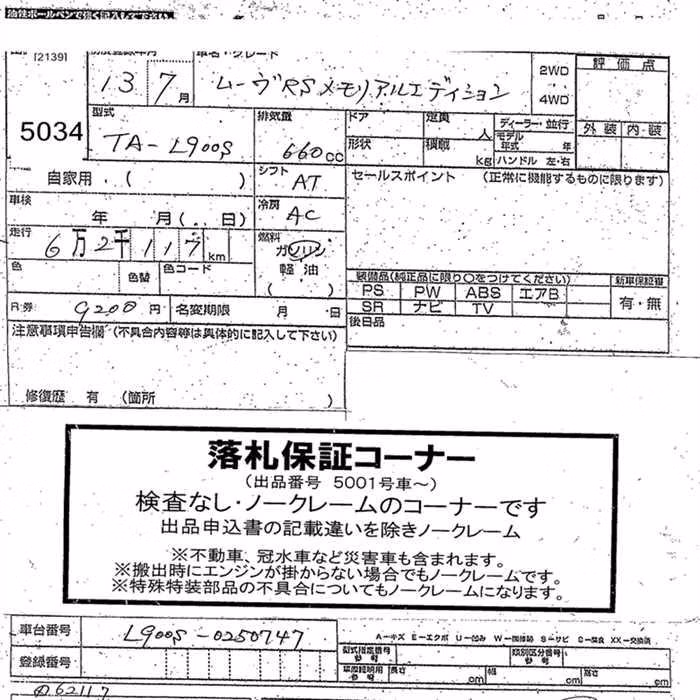 油性ボールペンで強く記入して下さい。
[2139]
車名・グレード
評価点
13 7月
ムーヴRSメモリアルエディション
2WD
4WD
5034
型式
TA-L900S
排気量
660cc
ドア
定員 人
ディーラー・並行
外装 内・装
形状
積載 kg
モデル年式 年
ハンドル 左・右
自家用・( )
シフト
AT
セールスポイント (正常に機能するものに限ります)
車検
年 月( 日)
冷房
AC
走行
6万2千117km
燃料
ガソリン
軽油
( )
色
色替
色コード
装備品(純正品に限り○をつけてください)
新車保証書
PS PW ABS エアB
有・無
SR ナビ TV
R券
9200円
名変期限 月 日
後日品
注意事項申告欄(不具合内容等は具体的に記入して下さい)
修復歴 有 (箇所 )
落札保証コーナー
(出品番号 5001号車~)
検査なし・ノークレームのコーナーです
出品申込書の記載違いを除きノークレーム
※不動車、冠水車など災害車も含まれます。
※搬出時にエンジンが掛からない場合でもノークレームです。
※特殊特装部品の不具合についてもノークレームになります。
車台番号
L900S-0250747
A-キズ E-エクボ U-凹み W-補修跡 S-サビ C-腐食 XX-交換済
登録番号
型式指定番号
類別区分番号
長さ cm 幅 cm 高さ cm
062117